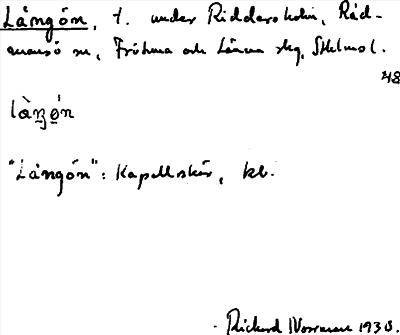 Långön, t. under Riddersholm, Råd-
mansö sn, Fröluna och Länna skg, Sthlms l.
48
làŋön
"Långön": Kapellskär, kl.
Rickard 1930.